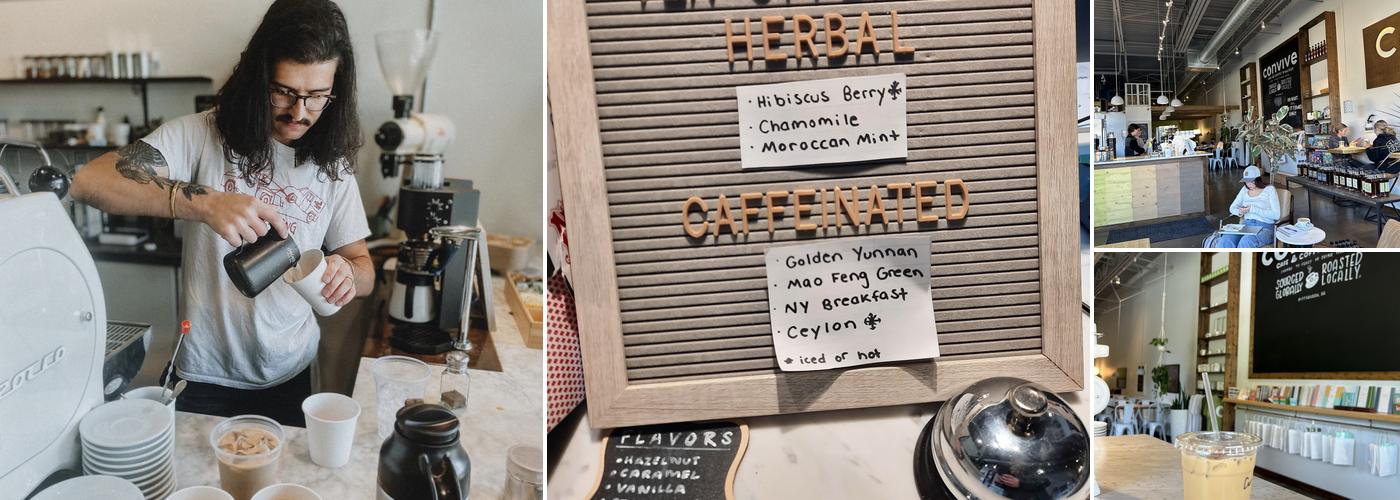 HERBAL
· Hibiscus Berry*
· Chamomile
· Moroccan Mint
CAFFEINATED
· Golden Yunnan
· Mao Feng Green
· NY Breakfast
· Ceylon *
* iced or hot
FLAVORS
• HAZELNUT
• CARAMEL
• VANILLA
convive
C
SOURCED GLOBALLY & ROASTED LOCALLY.
PITTSBURGH, PA